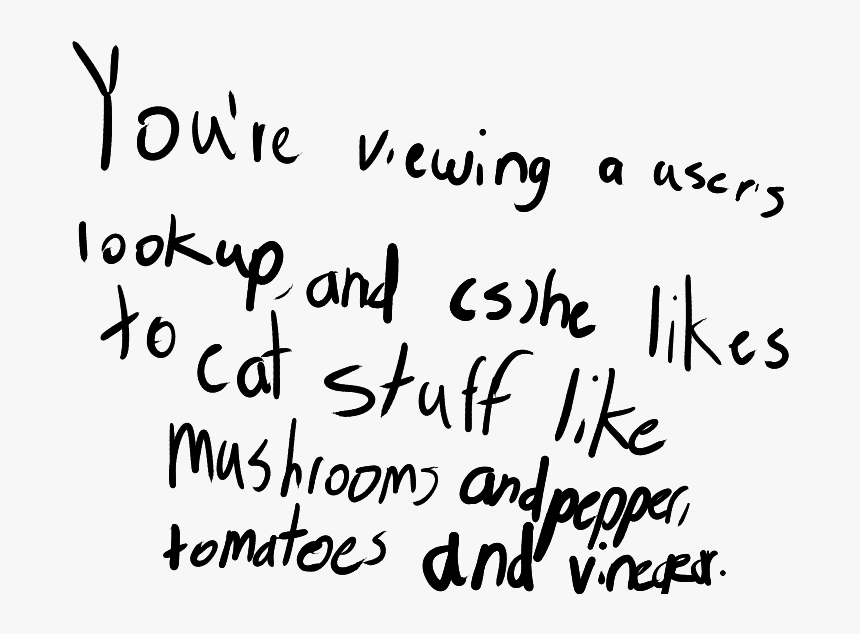 You're viewing a user's
lookup, and (s)he likes
to eat stuff like
mushrooms and pepper,
tomatoes and vinegear.